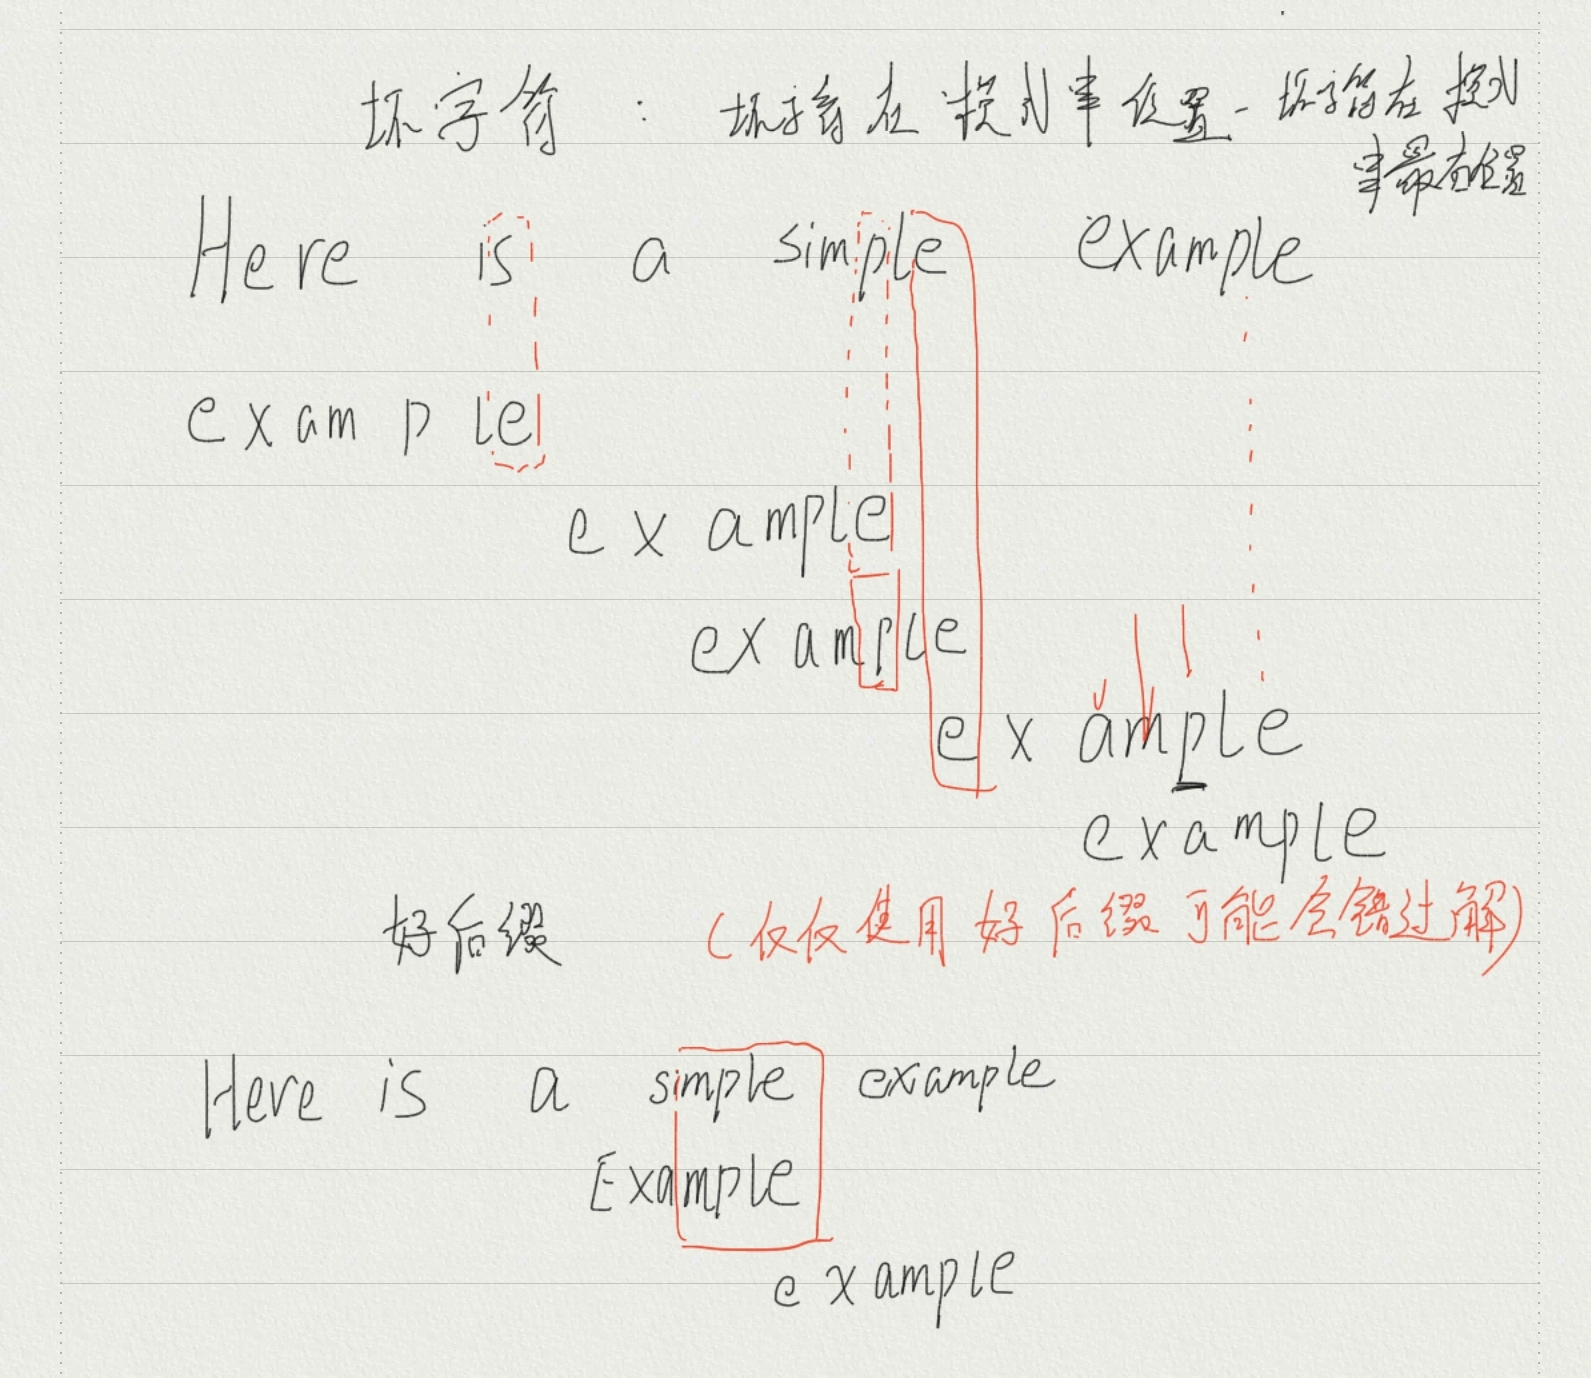 坏字符： 坏字符在模式串位置 - 坏字符在模式
串最右位置
Here is a simple example
example
example
example
example
example
好后缀 (仅仅使用好后缀可能会错过解)
Here is a simple example
Example
example